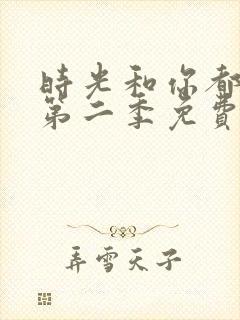 時光和你都
第二季免費
弄雪天子